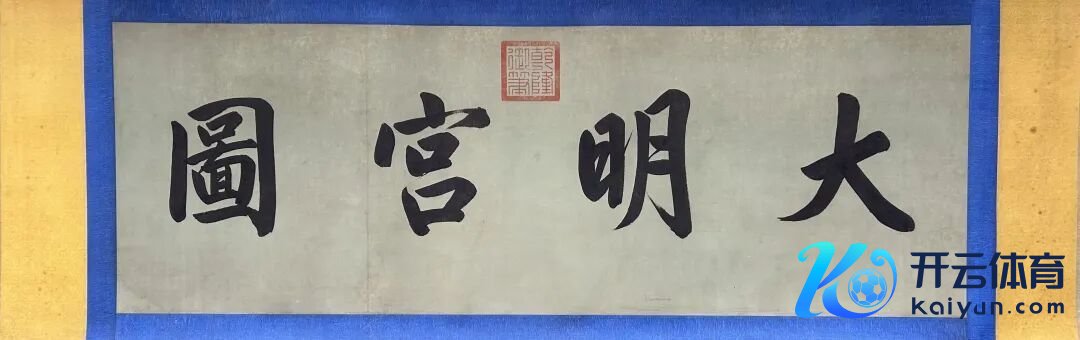 大明宫圖
乾隆
御筆
开云体育
Kaiyun.com